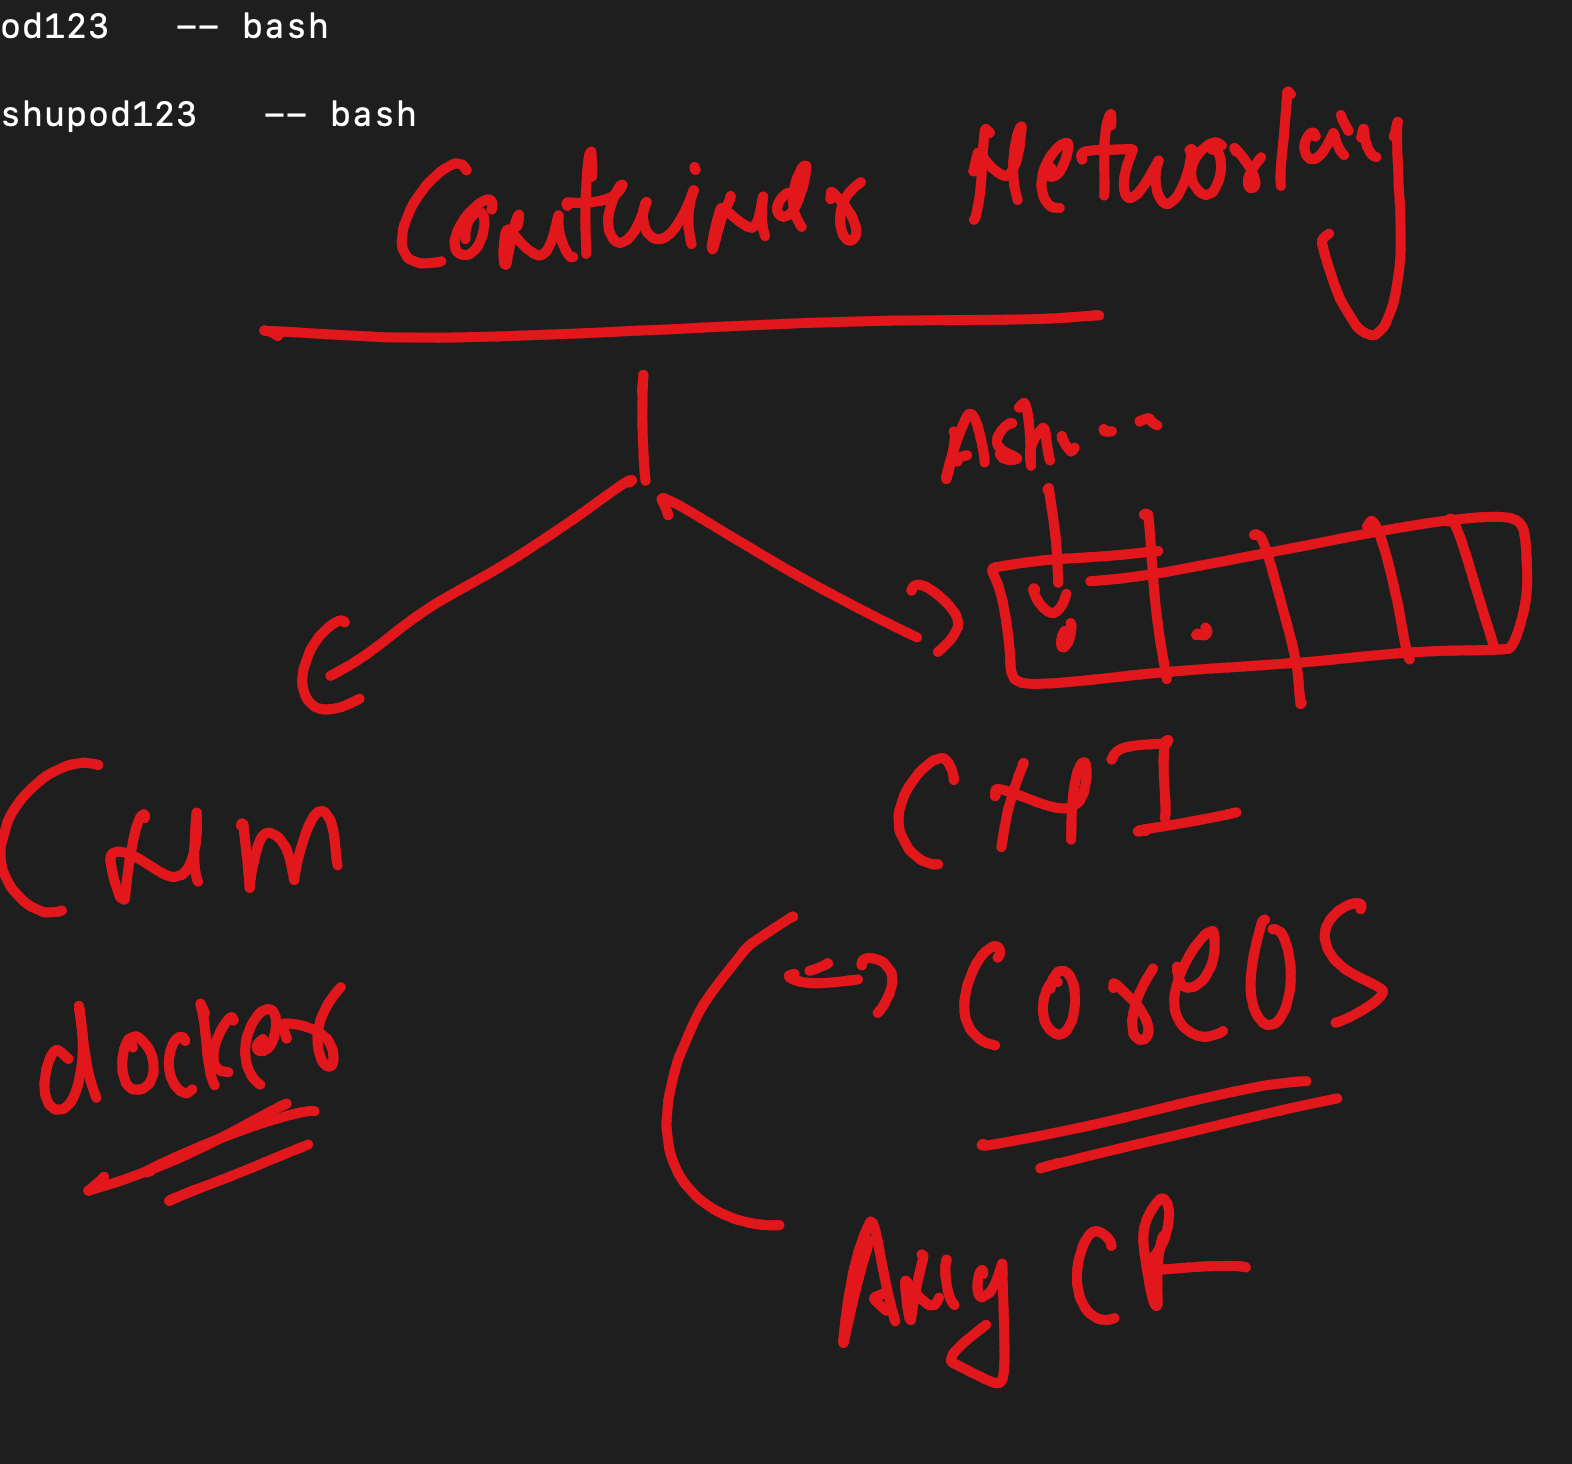 od123 -- bash
shupod123 -- bash
Container Networking
Ash...
CNM
CNI
docker
CoreOS
Any CR